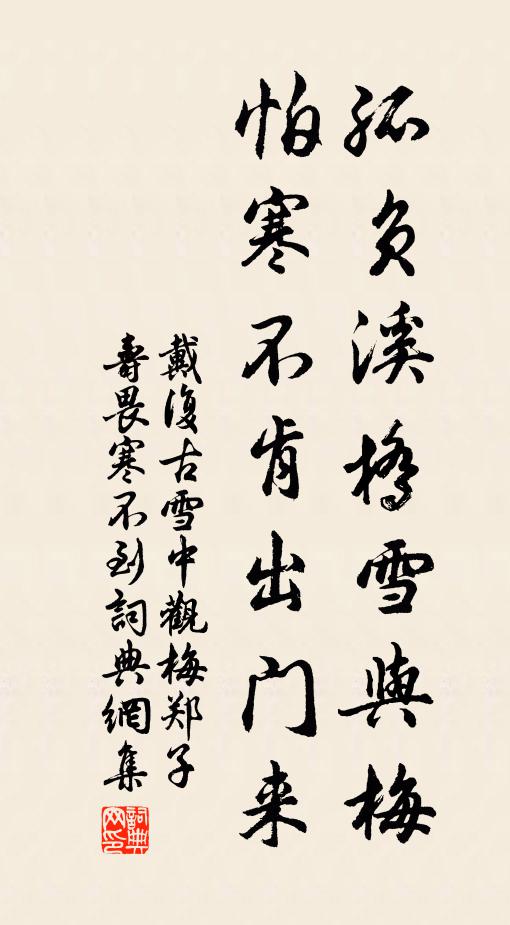 孤负溪橋雪與梅
怕寒不肯出门来
戴復古雪中觀梅郑子
壽畏寒不到詞典網集
詞典
网印